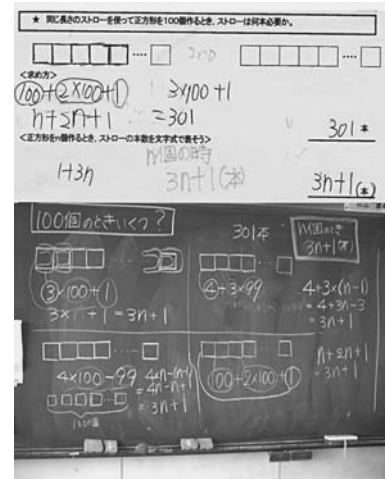 ★ 同じ長さのストローを使って正方形を100個作るとき、ストローは何本必要か。
<求め方>
100+2×100+1 3×100+1
n+2n+1 =301
301本
<正方形をn個作るとき、ストローの本数を文字式で表そう>
n個の時
1+3n 3n+1(本)
3n+1(本)
100個のときいくつ?
301本
n個のとき
3n+1(本)
3×100+1
3×n+1=3n+1
4+3×99
4+3×(n-1)
=4+3n-3
=3n+1
4×100-99
4×n-(n-1)
=4n-n+1
=3n+1
100個
100+2×100+1
n+2n+1
=3n+1